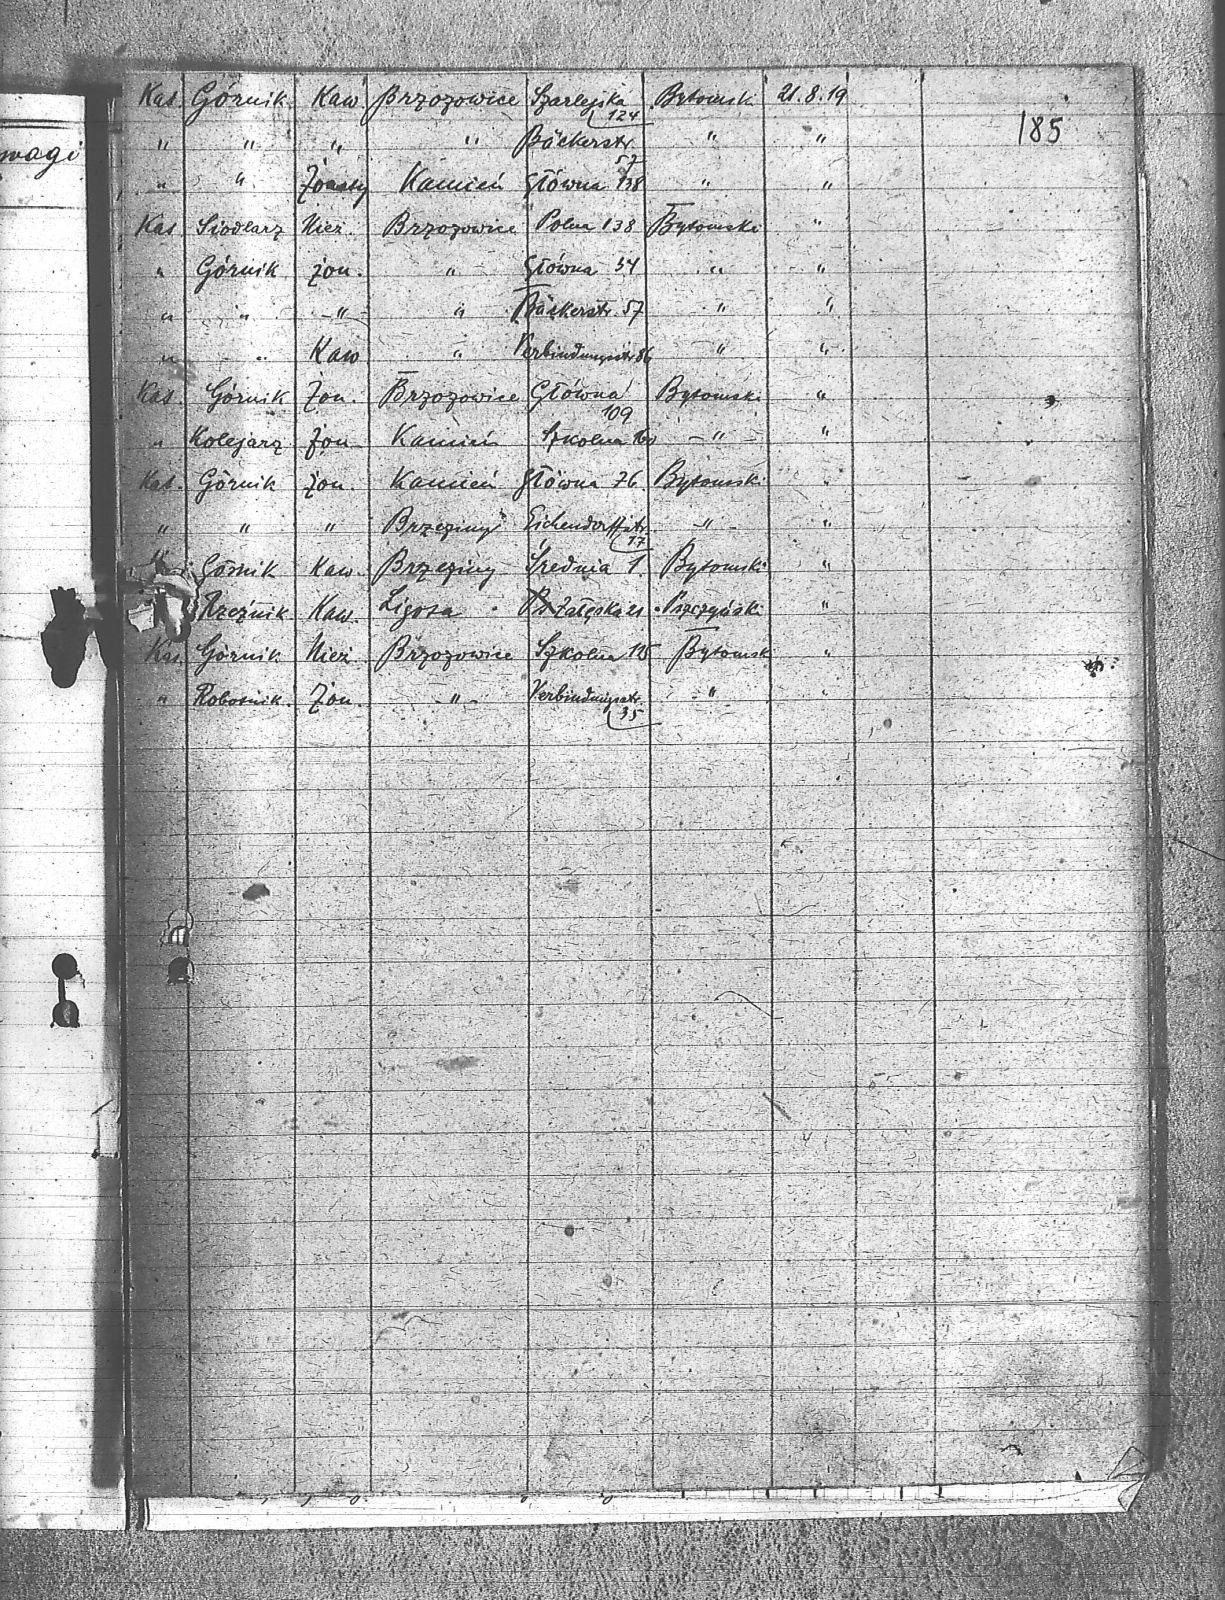 Kat. Górnik Kaw Brzozowice Szarlejska 124 Bytomsk 21.8.19
185
wagi
" " " " Bäckerstr. 57 " "
" " Żonaty Kamień Główna 138 " "
Kat Siodlarz Nież. Brzozowice Polna 138 Bytomski "
" Górnik żon. " Główna 54 " "
" " " " Bäckerstr. 57 " "
" " Kaw " Verbindungsstr 86 " "
Kat. Górnik Żon. Brzozowice Główna 109 Bytomski "
" Kolejarz Żon Kamień Szkolna " "
Kat. Górnik żon. Kamień Główna 76 Bytomski "
" " " Brzeziny Eichendorffstr. 17 " "
Górnik Kaw. Brzeziny Średnia 1. Bytomski "
Rzeźnik Kaw. Ligota Załęska 21 Pszczyński "
Kat. Górnik Nież Brzozowice Szkolna 115 Bytomsk "
" Robotnik. Żon. " Verbindungsstr. 35 " "